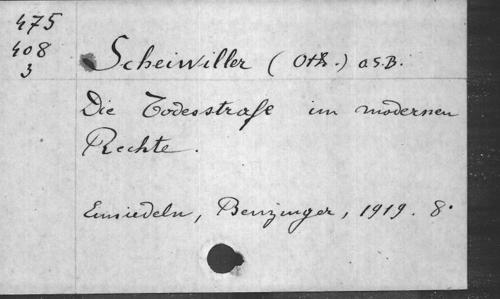 475
408
3
Scheiwiller (Oth.) O.S.B.
Die Todesstrafe im modernen
Rechte.
Einsiedeln, Benzinger, 1919. 8°